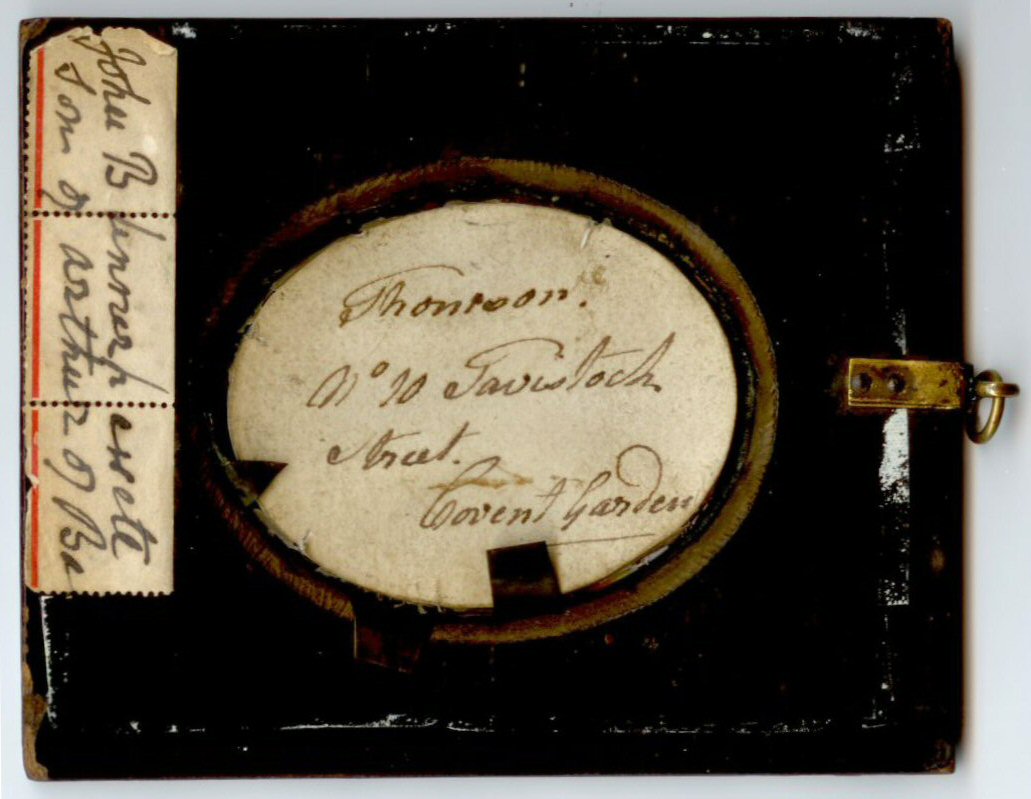 Thomson.
No 10 Tavistock
Street.
Covent Garden
John B
Son of Arthur of Ba